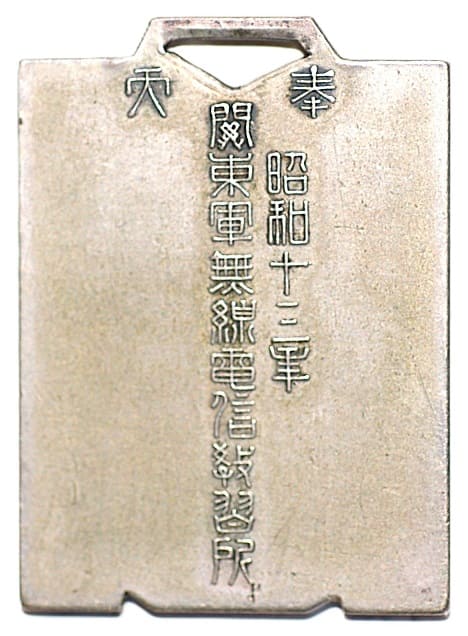 奉天
昭和十三年
關東軍無線電信教習所